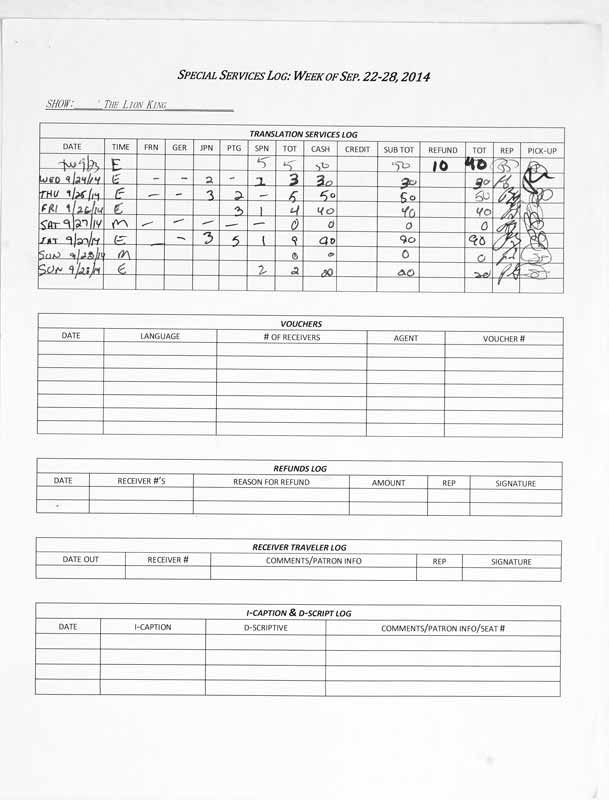 SPECIAL SERVICES LOG: WEEK OF SEP. 22-28, 2014
SHOW: THE LION KING
TRANSLATION SERVICES LOG
DATE TIME FRN GER JPN PTG SPN TOT CASH CREDIT SUB TOT REFUND TOT REP PICK-UP
9/23 E 5 5 50 50 10 40
WED 9/24/14 E - - 2 - 1 3 30 30 30
THU 9/25/14 E - - 3 2 - 5 50 50 50
FRI 9/26/14 E 3 1 4 40 40 40
SAT 9/27/14 M - - - - - 0 0 0 0
SAT 9/27/14 E - - 3 5 1 9 90 90 90
SUN 9/28/14 M 0 0 0 0
SUN 9/28/14 E 2 2 20 20 20
VOUCHERS
DATE LANGUAGE # OF RECEIVERS AGENT VOUCHER #
REFUNDS LOG
DATE RECEIVER #'S REASON FOR REFUND AMOUNT REP SIGNATURE
RECEIVER TRAVELER LOG
DATE OUT RECEIVER # COMMENTS/PATRON INFO REP SIGNATURE
I-CAPTION & D-SCRIPT LOG
DATE I-CAPTION D-SCRIPTIVE COMMENTS/PATRON INFO/SEAT #